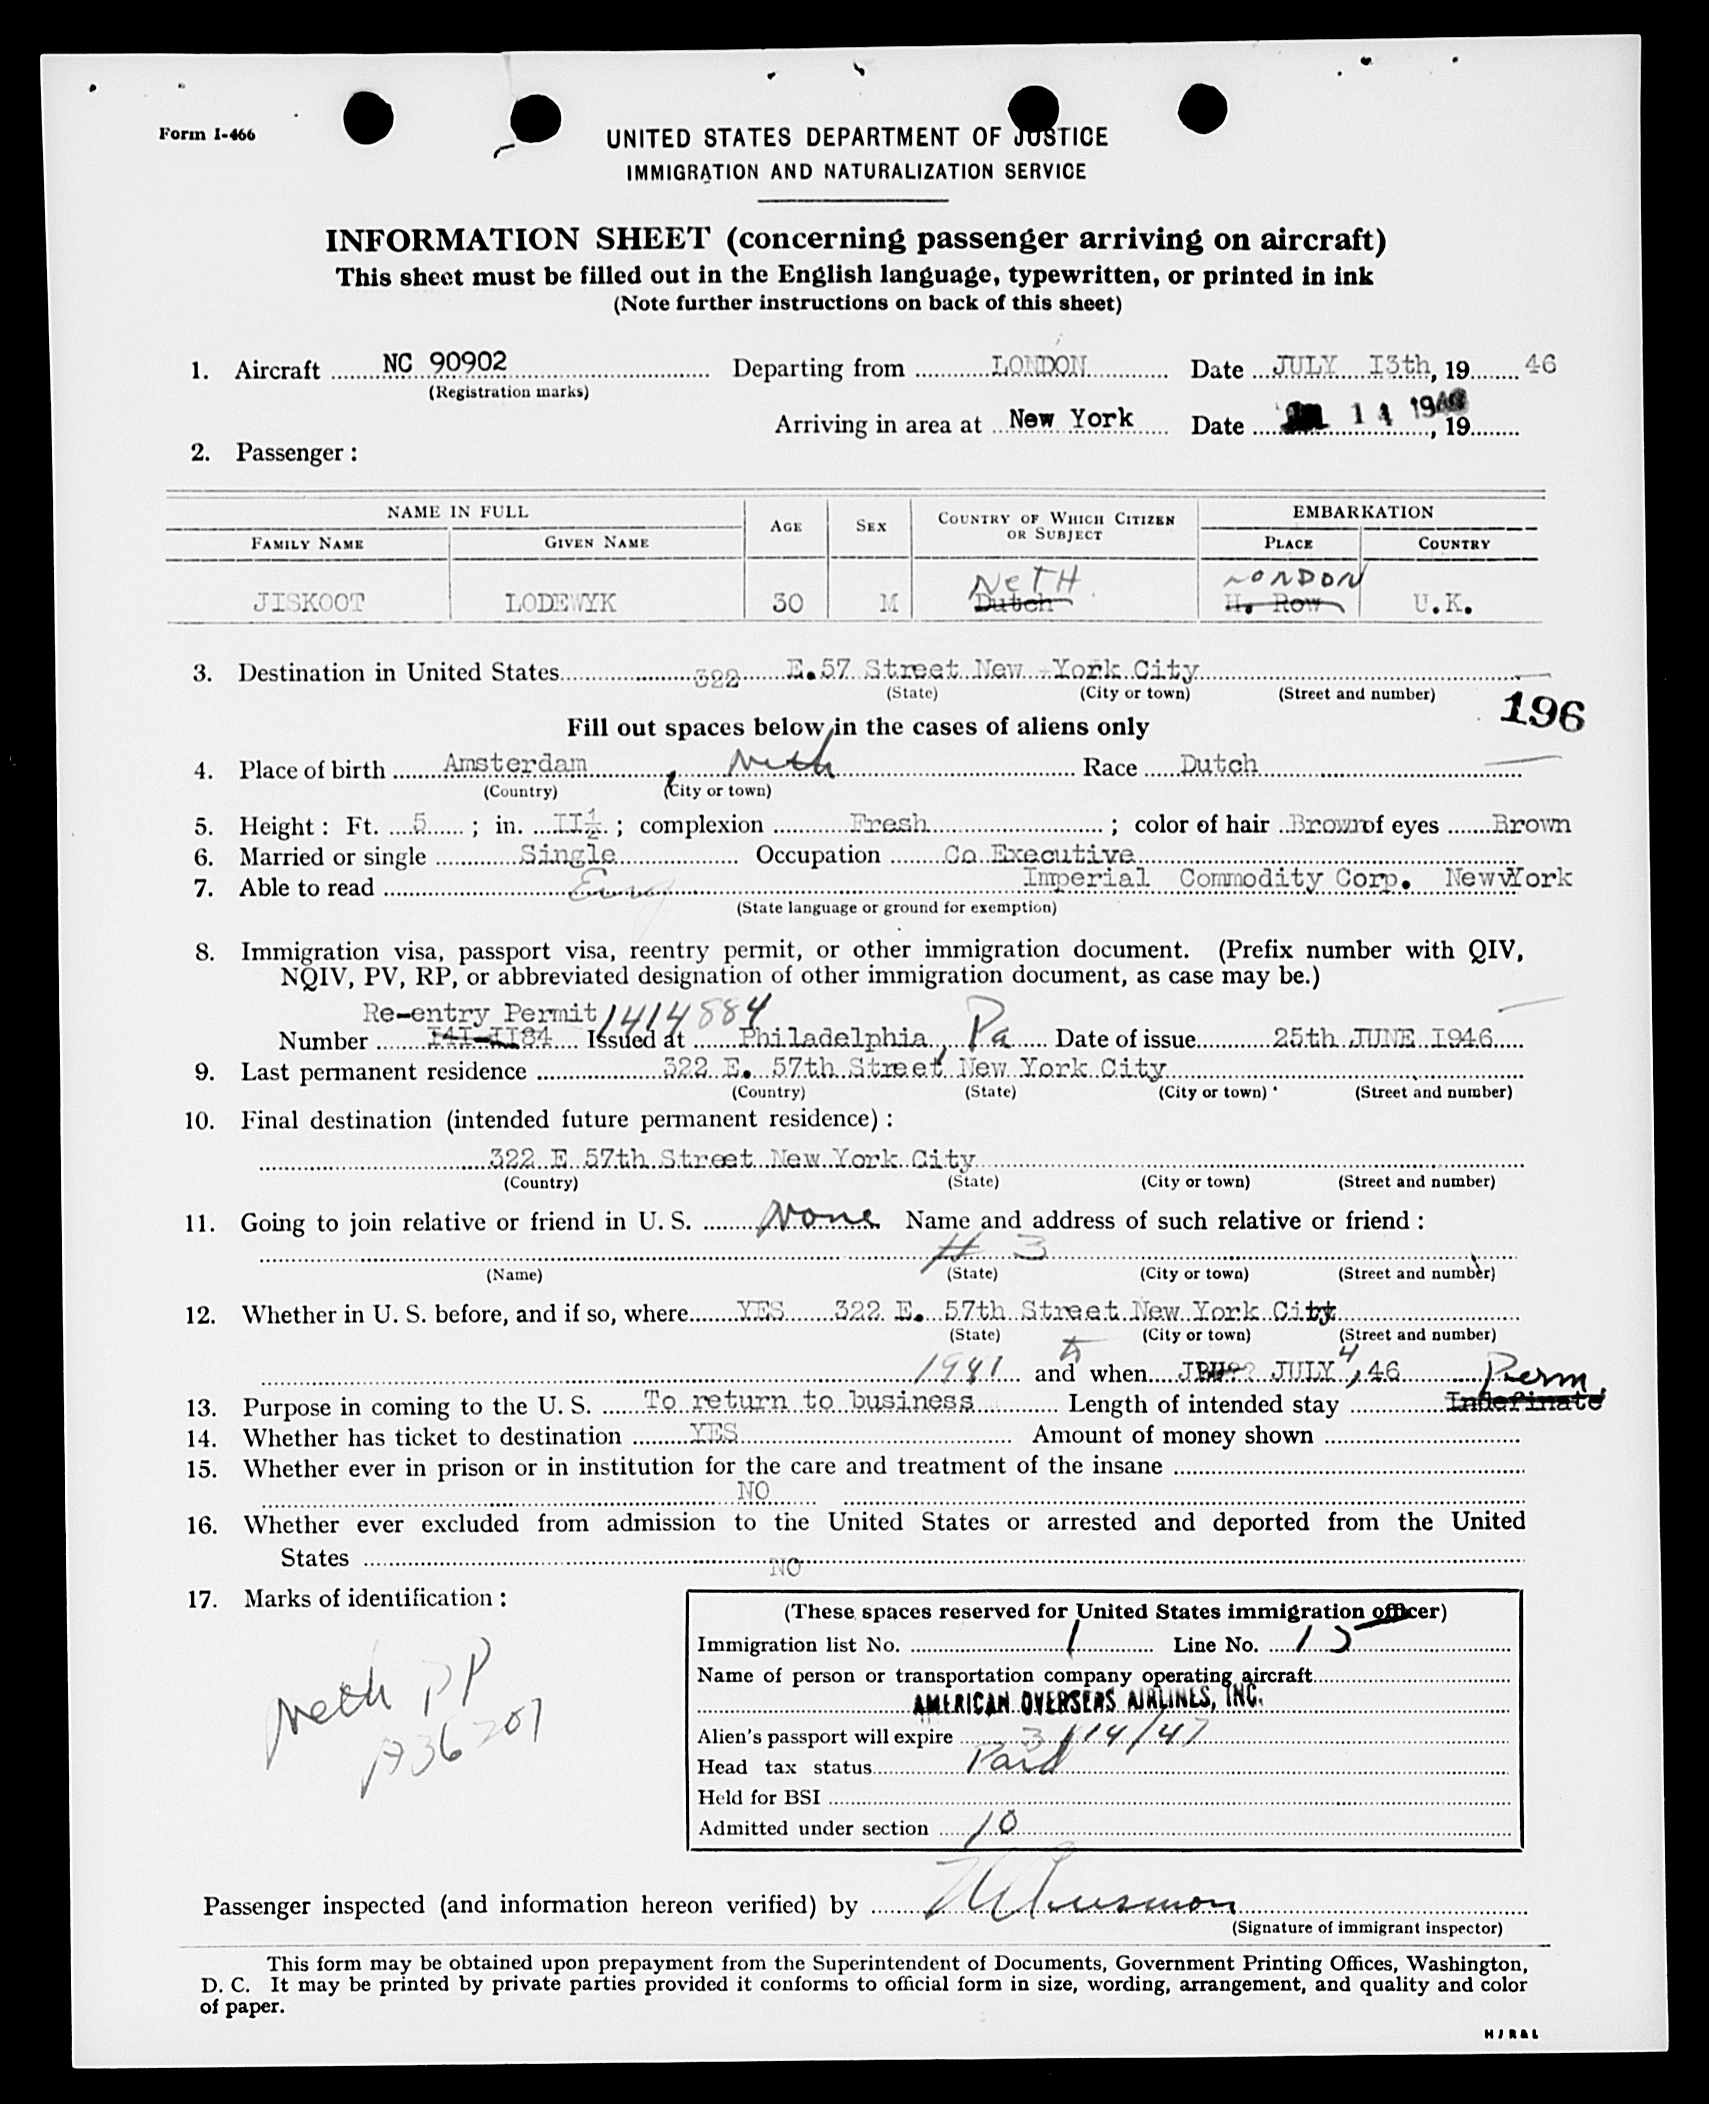 Form I-466
UNITED STATES DEPARTMENT OF JUSTICE
IMMIGRATION AND NATURALIZATION SERVICE
INFORMATION SHEET (concerning passenger arriving on aircraft)
This sheet must be filled out in the English language, typewritten, or printed in ink
(Note further instructions on back of this sheet)
1. Aircraft NC 90902 Departing from LONDON Date JULY I3th, 19 46
(Registration marks)
Arriving in area at New York Date 14 1946, 19
2. Passenger :
NAME IN FULL AGE SEX COUNTRY OF WHICH CITIZEN OR SUBJECT EMBARKATION
FAMILY NAME GIVEN NAME PLACE COUNTRY
NETH. LONDON
JISKOOT LODEWYK 30 M Dutch H. Row U.K.
3. Destination in United States 322 E.57 Street New York City
(State) (City or town) (Street and number)
196
Fill out spaces below in the cases of aliens only
4. Place of birth Amsterdam, Neth Race Dutch
(Country) (City or town)
5. Height : Ft. 5 ; in. II½ ; complexion Fresh ; color of hair Brown of eyes Brown
6. Married or single Single Occupation Co Executive
7. Able to read Eng Imperial Commodity Corp. New York
(State language or ground for exemption)
8. Immigration visa, passport visa, reentry permit, or other immigration document. (Prefix number with QIV,
NQIV, PV, RP, or abbreviated designation of other immigration document, as case may be.)
Re-entry Permit 1414884
Number I4I-II84 Issued at Philadelphia, Pa Date of issue 25th JUNE I946
9. Last permanent residence 322 E. 57th Street New York City
(Country) (State) (City or town) (Street and number)
10. Final destination (intended future permanent residence) :
322 E 57th Street New York City
(Country) (State) (City or town) (Street and number)
11. Going to join relative or friend in U. S. None Name and address of such relative or friend :
# 3
(Name) (State) (City or town) (Street and number)
12. Whether in U. S. before, and if so, where YES 322 E. 57th Street New York City
(State) (City or town) (Street and number)
1941 and when JULY 4, 46 Perm
13. Purpose in coming to the U. S. To return to business Length of intended stay Indefinate
14. Whether has ticket to destination YES Amount of money shown
15. Whether ever in prison or in institution for the care and treatment of the insane
NO
16. Whether ever excluded from admission to the United States or arrested and deported from the United
States NO
17. Marks of identification :
Neth PP
A36207
(These spaces reserved for United States immigration officer)
Immigration list No. 1 Line No. 15
Name of person or transportation company operating aircraft
AMERICAN OVERSEAS AIRLINES, INC.
Alien's passport will expire 3/14/47
Head tax status Paid
Held for BSI
Admitted under section 10
Passenger inspected (and information hereon verified) by
(Signature of immigrant inspector)
This form may be obtained upon prepayment from the Superintendent of Documents, Government Printing Offices, Washington,
D. C. It may be printed by private parties provided it conforms to official form in size, wording, arrangement, and quality and color
of paper.
H J R & L